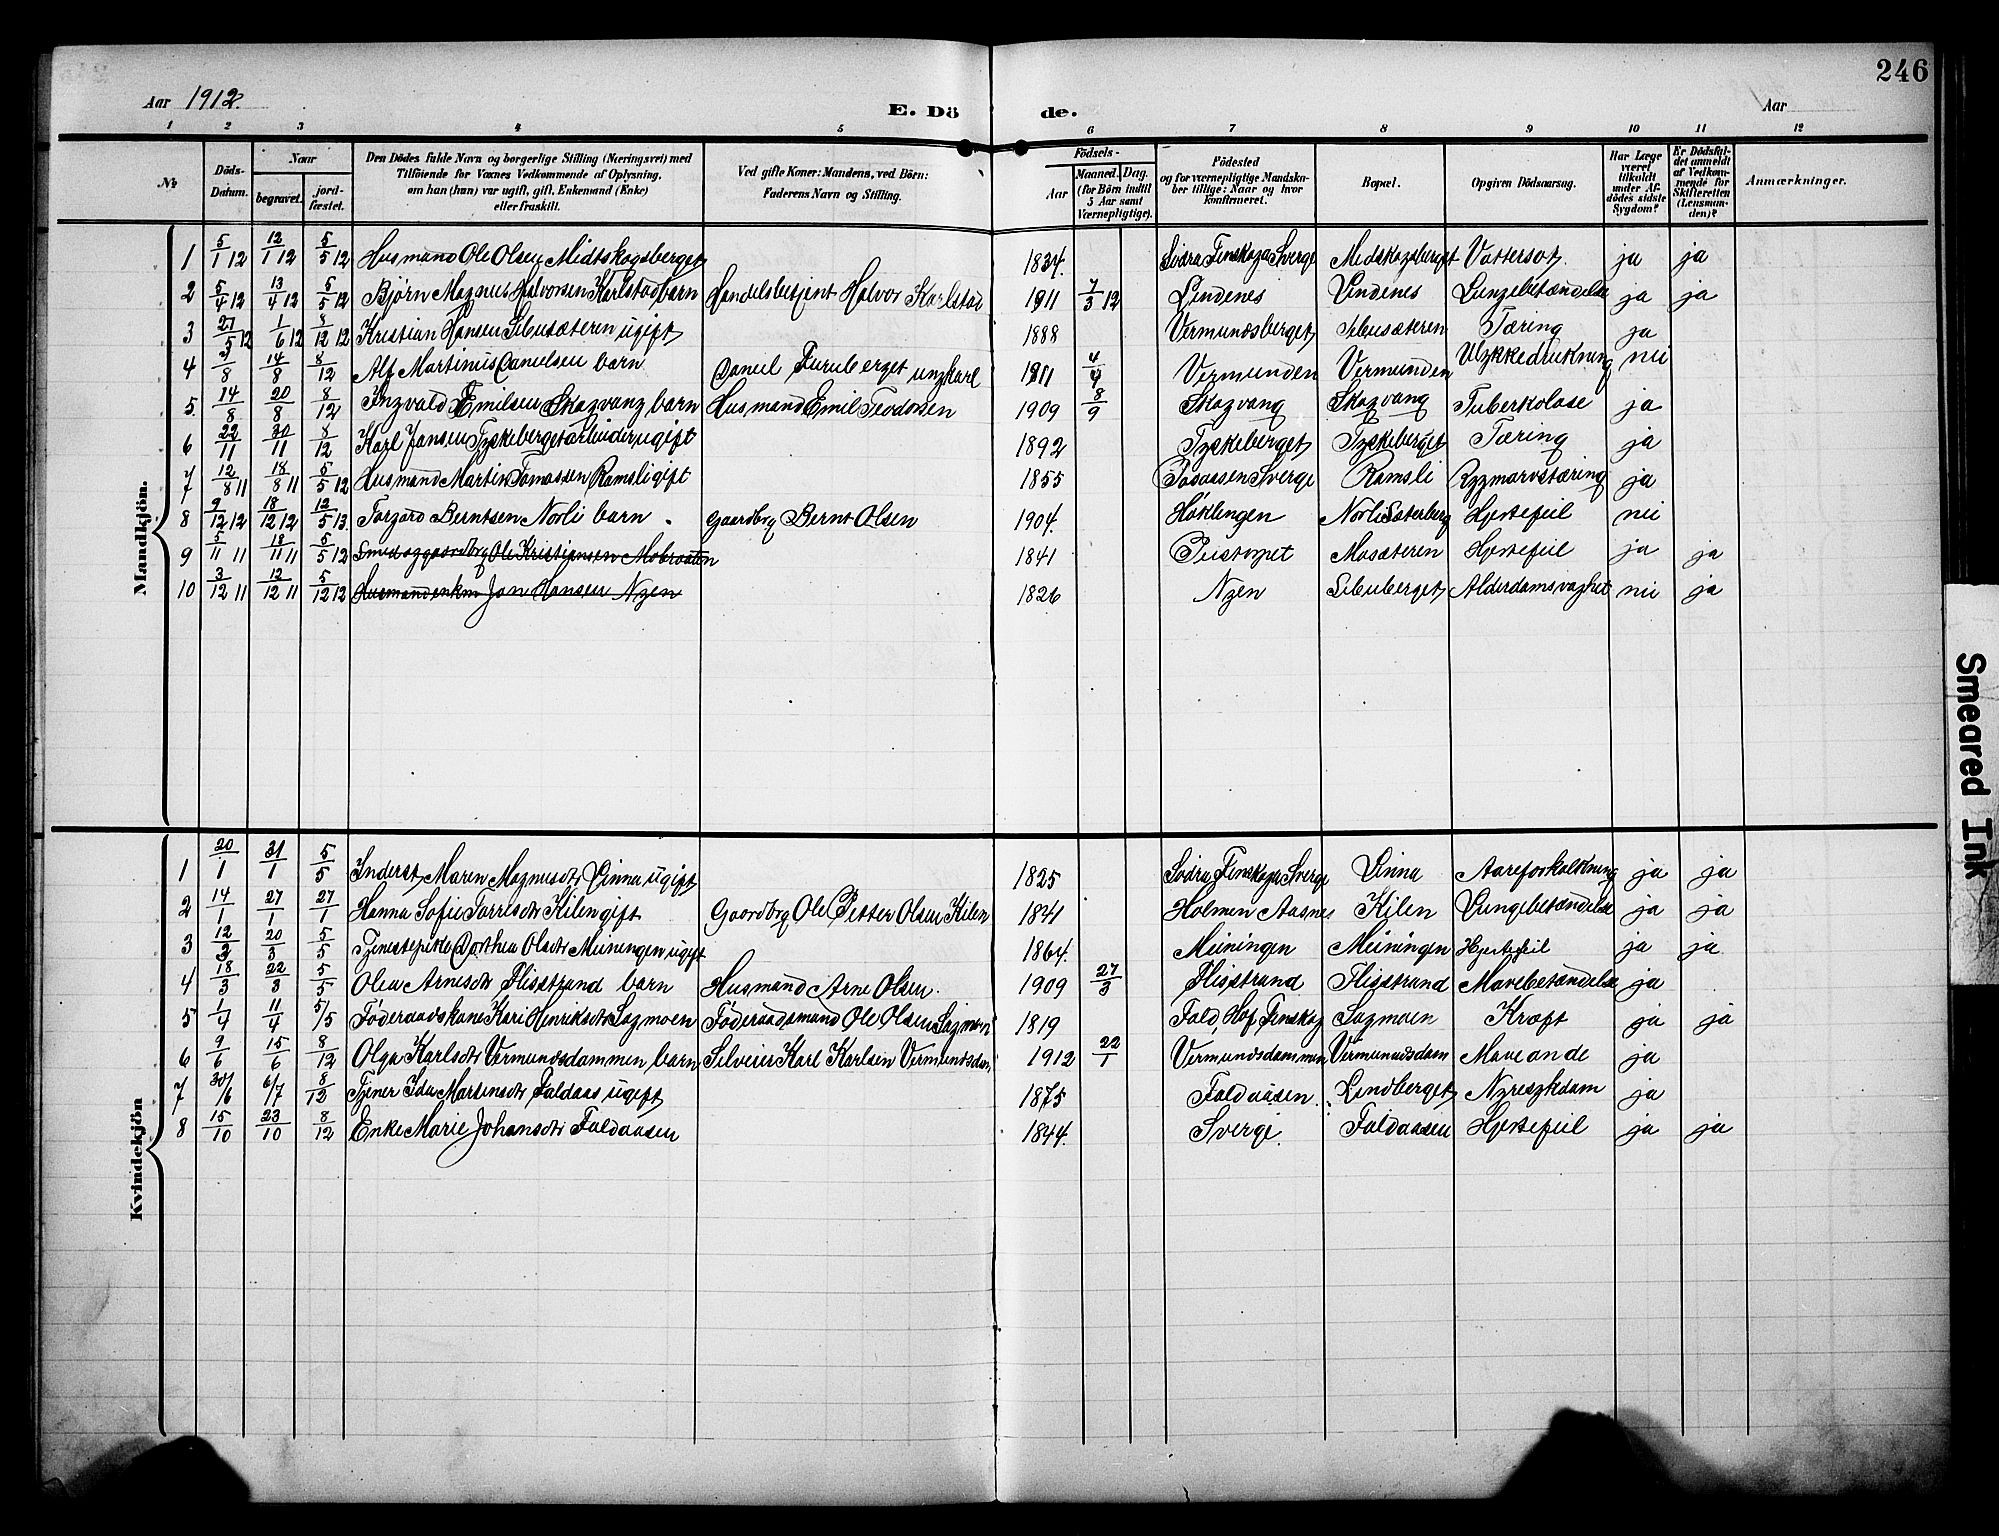 246
Aar 1912.
E. Dö de.
Aar
1 2 3 4 5 6 7 8 9 10 11 12
No. Döds-Datum. Naar begravet. jordfæstet. Den Dödes fulde Navn og borgerlige Stilling (Næringsvei) med Tilföiende for Voxnes Vedkommende af Oplysning, om han (hun) var ugift, gift, Enkemand (Enke) eller fraskilt. Ved gifte Koner: Mandens, ved Börn: Faderens Navn og Stilling. Födsels- Aar Maaned. Dag. (for Börn indtil 5 Aar samt Værnepligtige). Födested og for værnepligtige Mandskaber tillige: Naar og hvor konfirmeret. Bopæl. Opgiven Dödsaarsag. Har Læge været tilkaldt under Afdödes sidste Sygdom? Er Dödsfaldet anmeldt af Vedkommende for Skifteretten (Lensmanden)? Anmærkninger.
Mandkjön.
1 5/1 12 12/1 12 5/5 12 Husmand Ole Olsen Midtskogsberget 1834. Södra Finskoga Sverge Midskogsberget Vattersot ja ja
2 5/4 12 13/4 12 5/5 12 Björn Magnus Halvorsen Karlstad barn Handelsbetjent Halvor Karlstad 1911 7/3 12 Lindenes Lindenes Lungebetændelse ja ja
3 27/5 12 1/6 12 8/12 12 Kristian Hansen Sibusæteren ugift 1888 Vermundsberget Sibusæteren Tæring ja
4 /8 14/8 8/12 Alf Martinus Danielsen barn Daniel Furuberget ungkarl 1911 4/4 Vermunden Vermunden Ulykkedrukning nei
5. 14/8 20/8 8/12 Ingvald Emilsen Skogvang barn Husmand Emil Teodorsen 1909 8/9 Skogvang Skogvang Tuberkolose ja
6 22/11 30/11 8/12 Karl Jansen Tyskeberget arbeider ugift 1892 Tyskeberget Tyskeberget Tæring ja
7 12/8 11 18/8 11 5/5 12 Husmand Martin Tomassen Ramsli gift 1855 Sverge Ramsli Rygmarvstæring ja
8 9/12 12 18/12 12 12/5 13 Torgard Berntsen Norli barn. Gaardbrg Bernt Olsen 1904. Höklingen Norli Sæterberg Hjertefeil nei
9 5/11 11 18/11 11 5/5 12 Smed og gaardbrg Ole Kristiansen Mobraaten 1841 Peistorpet Mosæteren Hjertefeil ja ja
10 3/12 11 12/12 11 5/12 12 Husmand enkm Jon Hansen Nyen 1826 Nyen Sibuberget Alderdamsvaghet nei ja
Kvindekjön
1 20/1 31/1 5/5 Inderst Maren Magnusdtr Linna ugift 1825 Södra Finskoga Sverge Linna Aareforkalkning ja ja
2 14/1 27/1 27/1 Hanna Sofie Torrisdtr Kilen gift Gaardbrg Ole Petter Olsen Kilen 1841 Holmen Aasnes Kilen Lungebetændelse ja ja
3 12/3 20/3 5/5 Tjenestepike Dorthea Olsdtr Meiningen ugift 1864. Meiningen Meiningen Hjertefeil ja ja
4 18/3 22/3 5/5 Olea Arnesdtr Flisstrand barn Husmand Arne Olsen. 1909 27/3 Flisstrand Flisstrand Mavebetændelse ja
5 1/4 11/4 5/5 Föderaadskone Kari Henriksdtr Sagmoen Föderaadsmand Ole Olsen Sagmoen 1819 Fald, Hof Finskog Sagmoen Kræft ja ja
6 9/6 15/6 8/12 Olga Karlsdtr Vermundsdammen barn Selveier Karl Karlsen Vermundsdam 1912 22/1 Vermundsdammen Vermundsdam Maveonde ja
7 30/6 6/7 8/12 Tjener Ida Martinsdtr Faldaas ugift 1875 Faldaasen. Lindberget Nyresykdam ja
8 15/10 23/10 8/12 Enke Marie Johansdtr Faldaasen 1844. Sverge. Faldaasen Hjertefeil ja ja
Smeared Ink